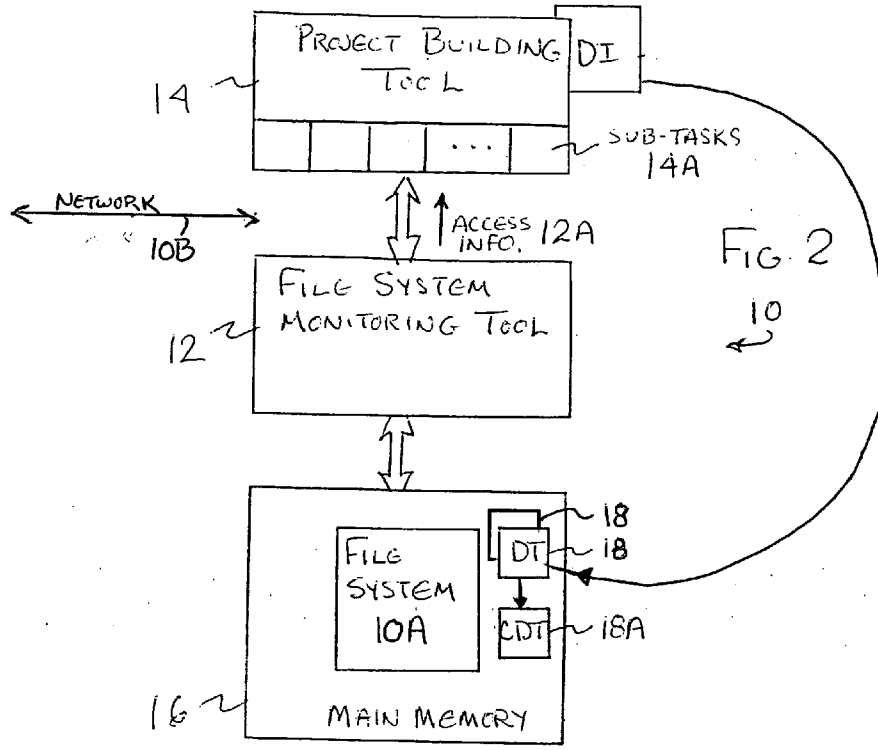 PROJECT BUILDING
TOOL
DI
14
SUB-TASKS
14A
NETWORK
10B
ACCESS
INFO. 12A
FIG 2
10
FILE SYSTEM
MONITORING TOOL
12
18
DT
18
FILE
SYSTEM
10A
CDT
18A
16
MAIN MEMORY